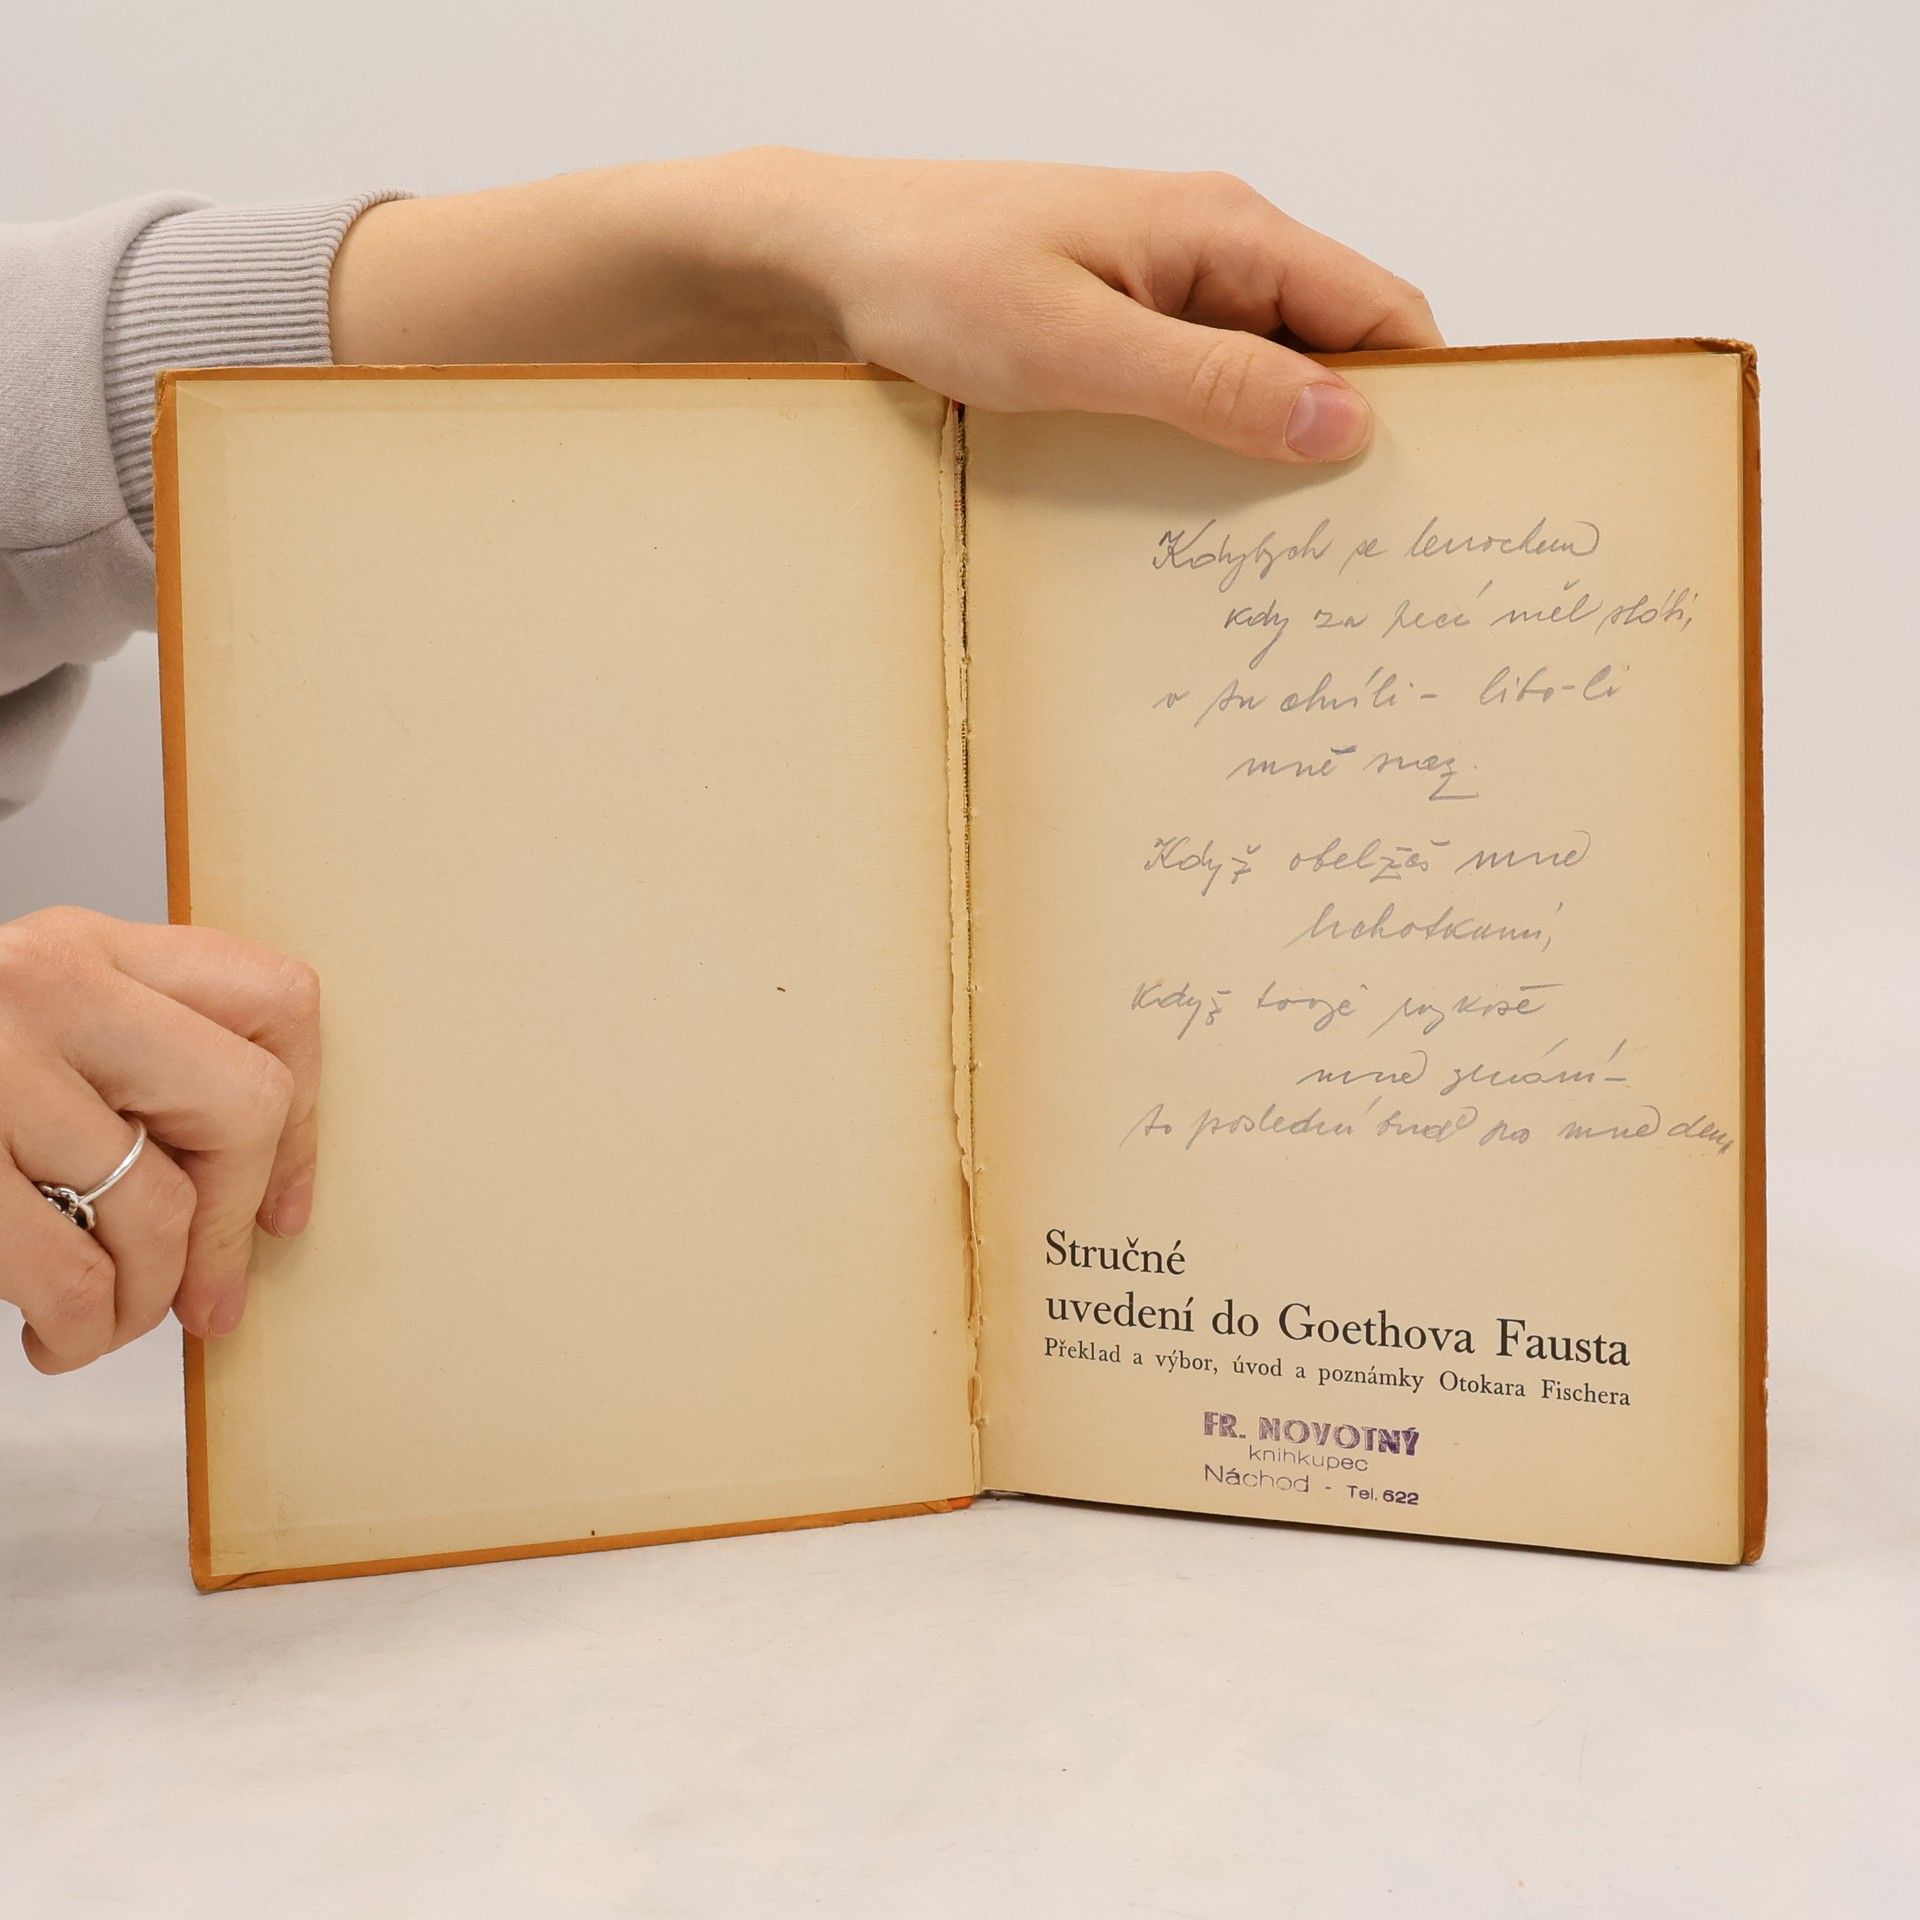 Kdybych se lenochem
kdy za pecí měl státi,
v tu chvíli – libo-li
mně sraz.
Když obelžeš mne
lichotkami,
Když tvojí rozkoše
mne zmámí –
to poslední buď pro mne den,
Stručné
uvedení do Goethova Fausta
Překlad a výbor, úvod a poznámky Otokara Fischera
FR. NOVOTNÝ
knihkupec
Náchod - Tel. 622